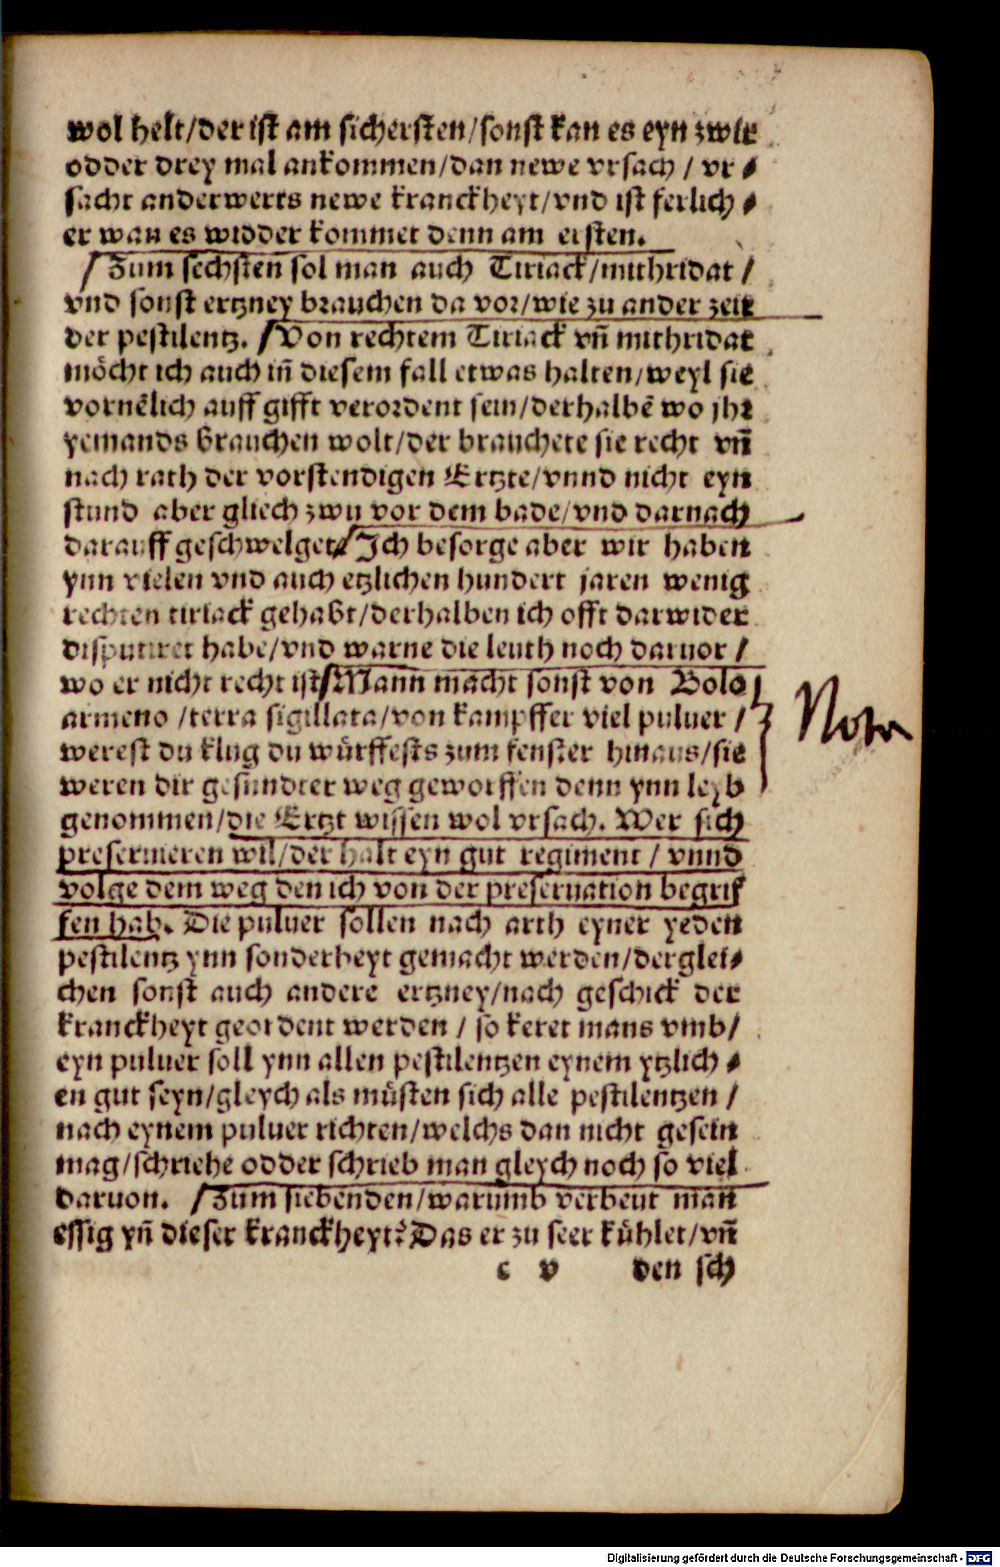 wol helt/der ist am sichersten/sonst kan es eyn zwir
odder drey mal ankommen/dan newe vrsach / vr⸗
sacht anderwerts newe kranckheyt/vnd ist ferlich⸗
er wan es widder kommet denn am ersten.
Zum sechsten sol man auch Tiriack/mithridat /
vnd sonst ertzney brauchen da vor/wie zu ander zeit
der pestilentz. Von rechtem Tiriack vñ mithridat
möcht ich auch iñ diesem fall etwas halten/weyl sie
vornẽlich auff gifft verordent sein/derhalbẽ wo jhr
yemands brauchen wolt/der brauchete sie recht vñ
nach rath der vorstendigen Ertzte/vnnd nicht eyn
stund aber gliech zwu vor dem bade/vnd darnach
darauff geschwelget/Ich besorge aber wir haben
ynn vielen vnd auch etzlichen hundert jaren wenig
rechten tiriack gehabt/derhalben ich offt darwider
disputiret habe/vnd warne die leuth noch daruor /
wo er nicht recht ist/Mann macht sonst von Bolo
armeno /terra sigillata/von kampffer viel puluer /
werest du klug du würffests zum fenster hinaus/sie
weren dir gesundter weg geworffen denn ynn leyb
genommen/die Ertzt wissen wol vrsach. Wer sich
preserueren wil/der halt eyn gut regiment / vnnd
volge dem weg den ich von der preseruation begrif
fen hab. Die puluer sollen nach arth eyner yeden
pestilentz ynn sonderheyt gemacht werden/derglei⸗
chen sonst auch andere ertzney/nach geschick der
kranckheyt geordent werden / so keret mans vmb/
eyn puluer soll ynn allen pestilentzen eynem ytzlich⸗
en gut seyn/gleych als müsten sich alle pestilentzen /
nach eynem puluer richten/welchs dan nicht gesein
mag/schriehe odder schrieb man gleych noch so viel
daruon. Zum siebenden/warumb verbeut man
essig yñ dieser kranckheyt? Das er zu seer kühlet/vñ
c v den sch
Nota
Digitalisierung gefördert durch die Deutsche Forschungsgemeinschaft - DFG